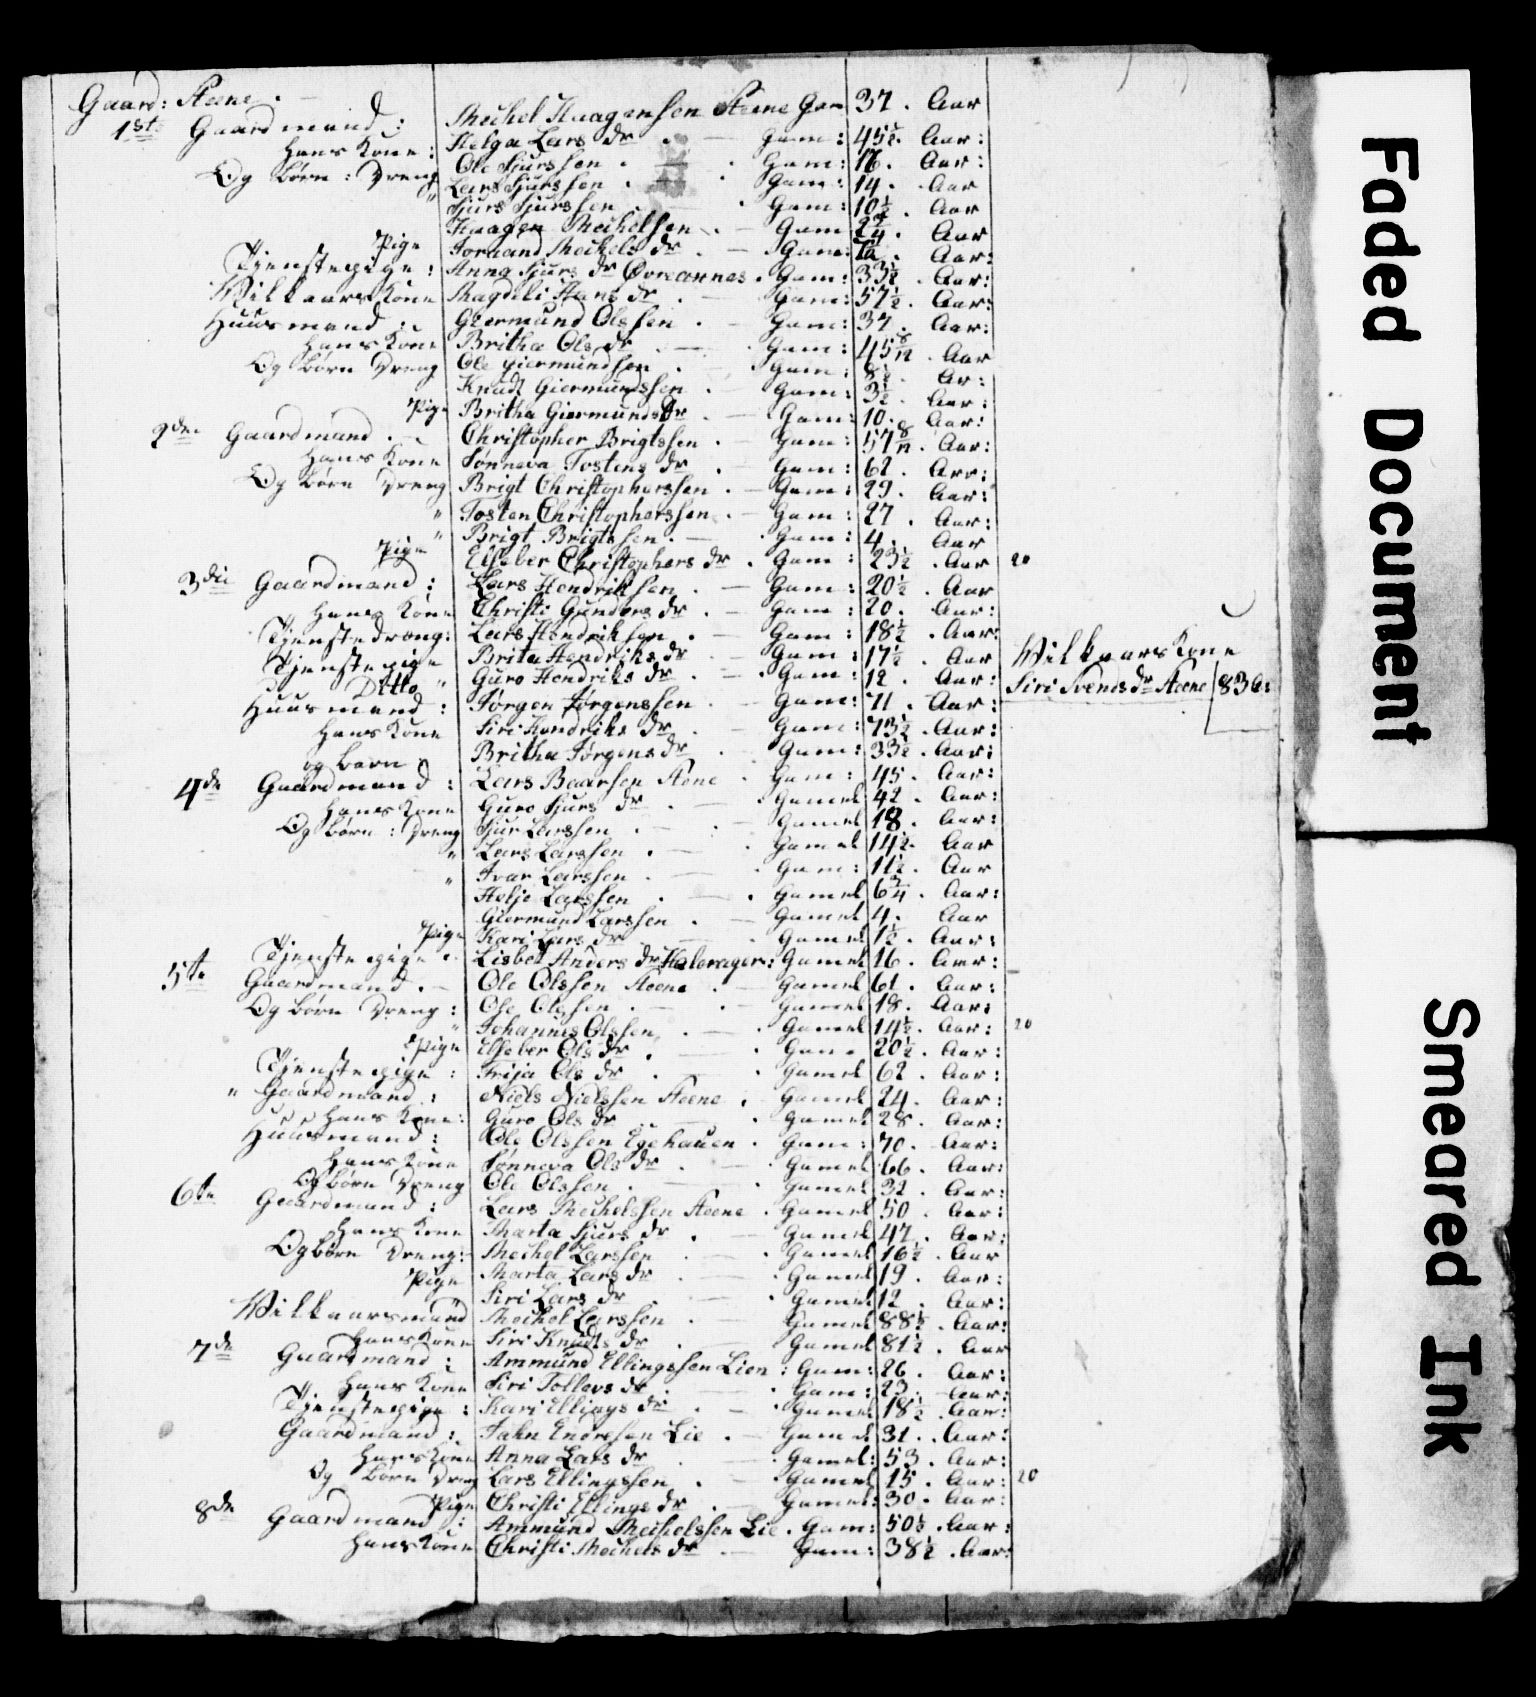 Gaard: Steene .
1ste Gaardmand : Mechel Haagensen Steene Gam 37 . Aar
Hans Kone : Helga Lars dr . Gam : 45½ . Aar :
Og børn : Dreng Ole Sjurssen . Gam : 16 . Aar :
" Lars Sjurssen . Gam : 14 . Aar
Sjurs Sjurssen . Gam : 10½ . Aar
Haagen Mechelsen . Gam . Aar
Pige Joraand Mechels dr . Gam : Aar :
Tjenstepige : Anna Sjurs dr Øvreannes . Gam : 33½ . Aar :
Wilkaars Kone Magdeli Hans dr . Gam : 57½ . Aar :
Huusmand : Giermund Olssen . Gam : 37 . Aar :
Hans Kone Britha Ols dr . Gam : 45 8/12 . Aar
Og børn Dreng Ole Giermundsen . Gam : 8½ . Ar :
Knudt Giermundssen . Gam : 3½ . Aar :
Pige Britha Giermunds dr . Gam : 10 . Aar :
2den Gaardmand . Christopher Brigtssen . Gam : 57 8/12 . Aar :
Hans Kone Sønneva Tostens dr . Gam : 62 . Aar :
Og børn Dreng Brigt Christopherssen . Gam : 29 . Aar :
" Tosten Christopherssen . Gam : 27 . Aar :
" Brigt Brigtssen . Gam : 4 . Aar
Pige Elseber Christophers dr . Gam : 23½ . Aar 20
3die Gaardmand : Lars Hendrikssen . Gam : 20½ . Aar
Hans Kone Christi Gunders dr . Gam : 20 . Aar :
Tjenstedreng : Lars Hendriksen . Gam : 18½ . Aar :
Tjenstepige Brita Hendriks dr . Gam : 17½ . Aar
Ditto " Guro Hendriks dr . Gam : 12 . Aar :
Wilkaars Kone
Siri Svends dr Steene 83 a:
Huusmand : Jørgen Jørgenssen . Gam : 71 . Aar :
Hans Kone Siri Hendriks dr . Gam : 73½ . Aar :
og barn . Britha Jørgens dr . Gam : 33½ . Aar :
4de Gaardmand : Lars Baarsen Stene . Gam : 45 . Aar :
Hans Kone Guro Sjurs dr . Gamel 42 . Aar :
Og børn : Dreng Sjur Larssen . Gamel 18 . Aar :
" Lars Larssen . Gamel 14½ . Aar
" Ivar Larssen . Gam : 11½ . Aar
Helje Larssen . Gamel 6 3/4 . Aar :
Giermund Larssen . Gamel 4 . Aar
Pige Kari Lars dr . Gamel 1½ . Aar :
Tjenstepige . Lisbet Anders dr Halerager : Gamel 16 . Aar :
5te Gaardmand . Ole Olssen Steene . Gamel 61 . Aar :
Og børn Dreng : Ole Olssen . Gamel 18 . Aar :
" Johannes Olssen . Gamel 14½ . Aar : 20
Pige Elseber Ols dr . Gam . 20½ . Aar :
Tjenstepige : Frija Ols dr . Gamel 62 . Aar :
" Gaardmand : Niels Nielssen Steene . Gamel 24 . Aar :
Hans Kone : Guro Ols dr . Gamel 28 . Aar :
Huusmand : Ole Olssen Egehauen . Gam : 70 . Aar :
Hans Kone Sønneva Ols dr . Gamel 66 . Aar :
Og børn Dreng Ole Olssen . Gamel 32 . Aar :
6te Gaardmand : Lars Mechelssen Steene . Gamel 50 . Aar :
Hans Kone Marta Sjurs dr . Gamel 47 . Aar :
Og børn Dreng : Mechel Larssen . Gamel 16½ . Aar
Pige Marta Lars dr . Gamel 19 . Aar :
Siri Lars dr . Gamel 12 . Aar :
Wilkaarsmand Mechel Larssen . Gamel 88½ . Aar :
Hans Kone Siri Knudts dr . Gamel 81½ . Aar
7de Gaardmand : Ammund Ellingssen Lien : Gam : 26 . Aar :
Hans Kone Siri Tollevs dr . Gam : 23 . Aar :
Tjenstepige : Kari Ellings dr . Gamel 18½ . Aar :
Gaardmand : Jahn Endresen Lie . Gamel 31 . Aar :
Hans Kone Anna Lars dr . Gamel : 53 . Aar :
Og børn Dreng Lars Ellingssen . Gamel 15 . Aar : 20
Pige Christi Ellings dr . Gamel : 30 . Aar :
8de Gaardmand : Ammund Mechelssen Lie . Gam : 50½ . Aar :
Hans Kone Christi Mechels dr . Gam : 38½ . Aar :
Faded Document
Smeared Ink